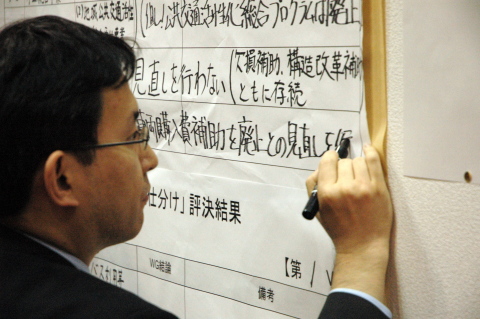 (2)地域公共交通活性
(但し)公共交通活性化総合プログラムは廃止
見直しを行わない(欠損補助、構造改革補助
ともに存続
車両購入費補助を廃止との見直しを行
仕分け」評決結果
WG結論
備考
【第1